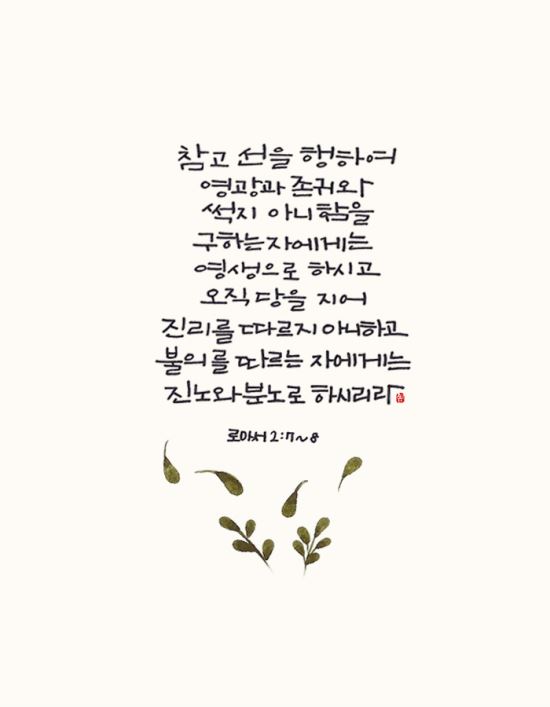 참고 선을 행하여
영광과 존귀와
썩지 아니함을
구하는자에게는
영생으로 하시고
오직 당을 지어
진리를 따르지 아니하고
불의를 따르는 자에게는
진노와 분노로 하시리라
로마서 2:7~8